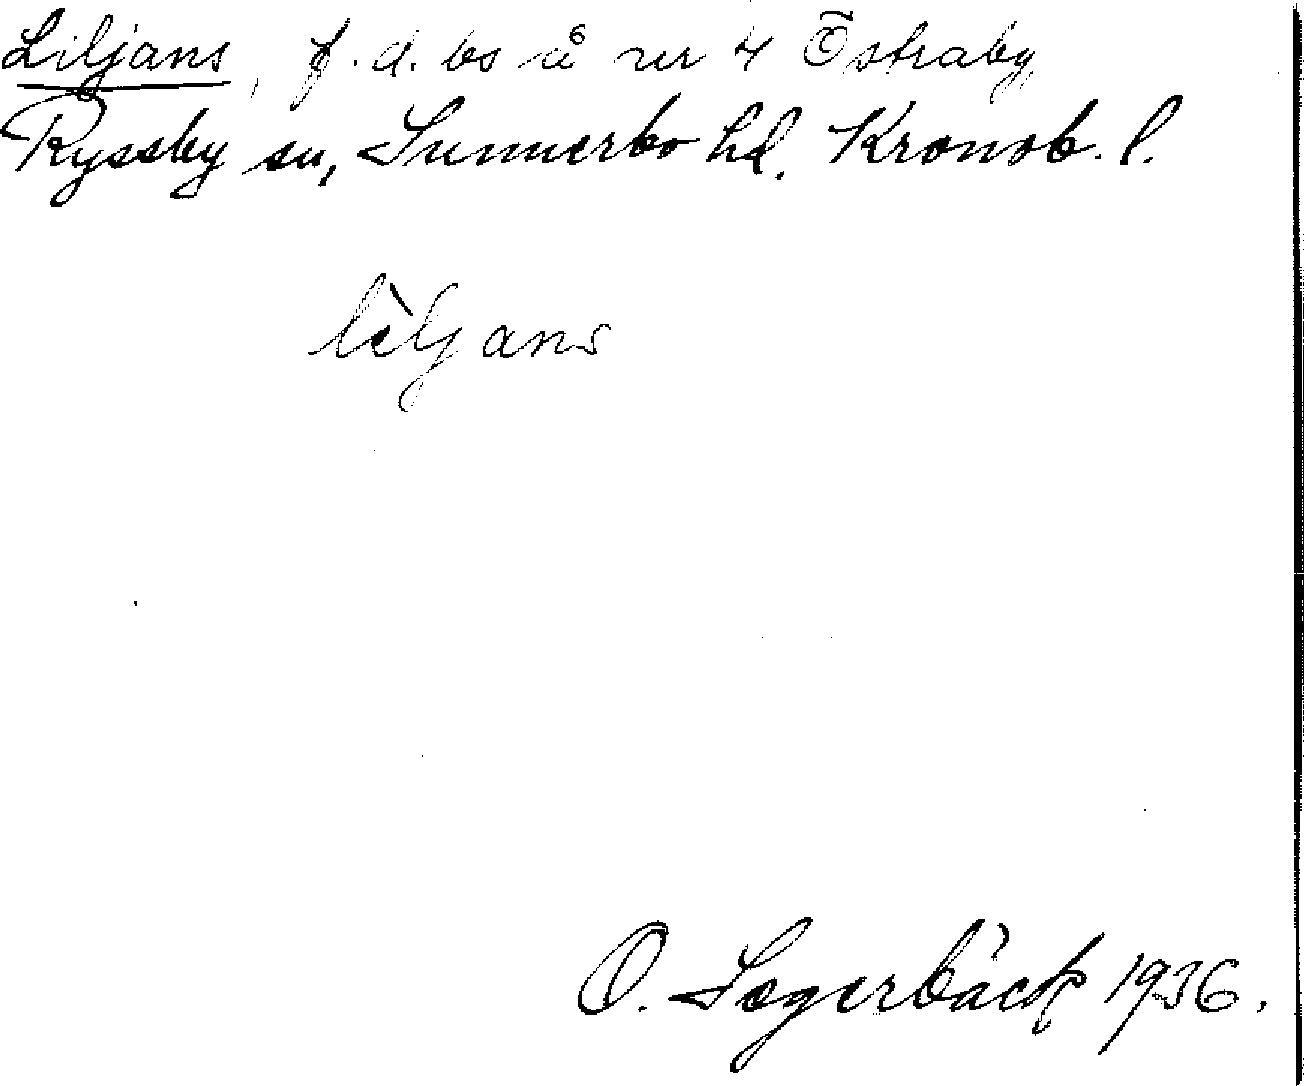 Liljans, f.d. bs å nr 4 Östraby
Ryssby sn, Sunnerbo hd. Kronob. l.
lìljans
O. Segerbäck 1936.